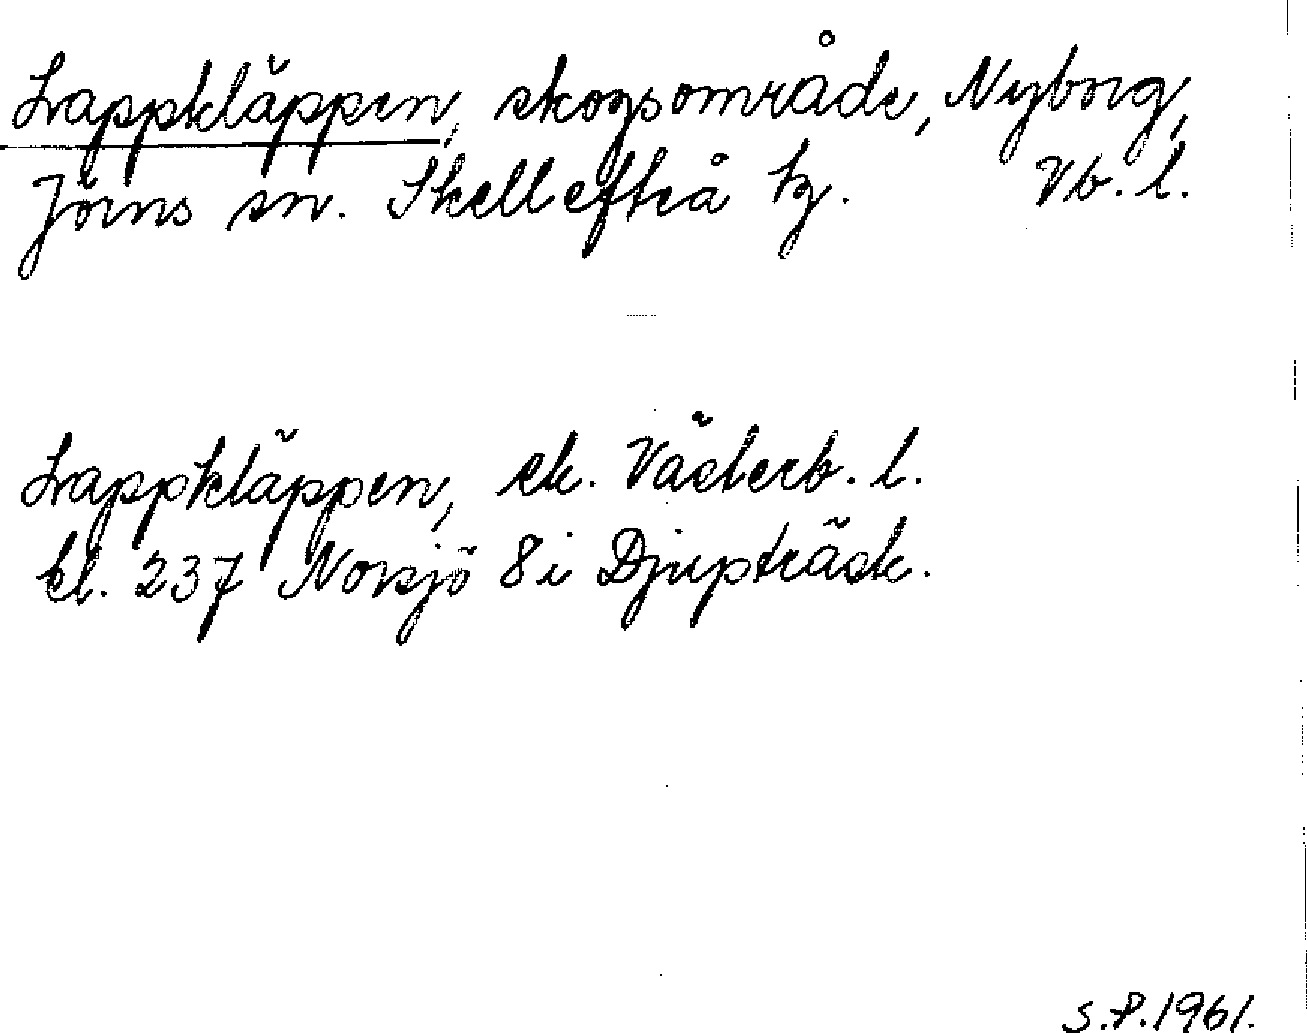 Lappkläppen, skogsområde, Nyborg,
Jörns sn. Skellefteå tg. Vb. l.
Lappkläppen, ek. Västerb. l.
bl. 237 Norsjö 8i Djupträsk.
S.P. 1961.